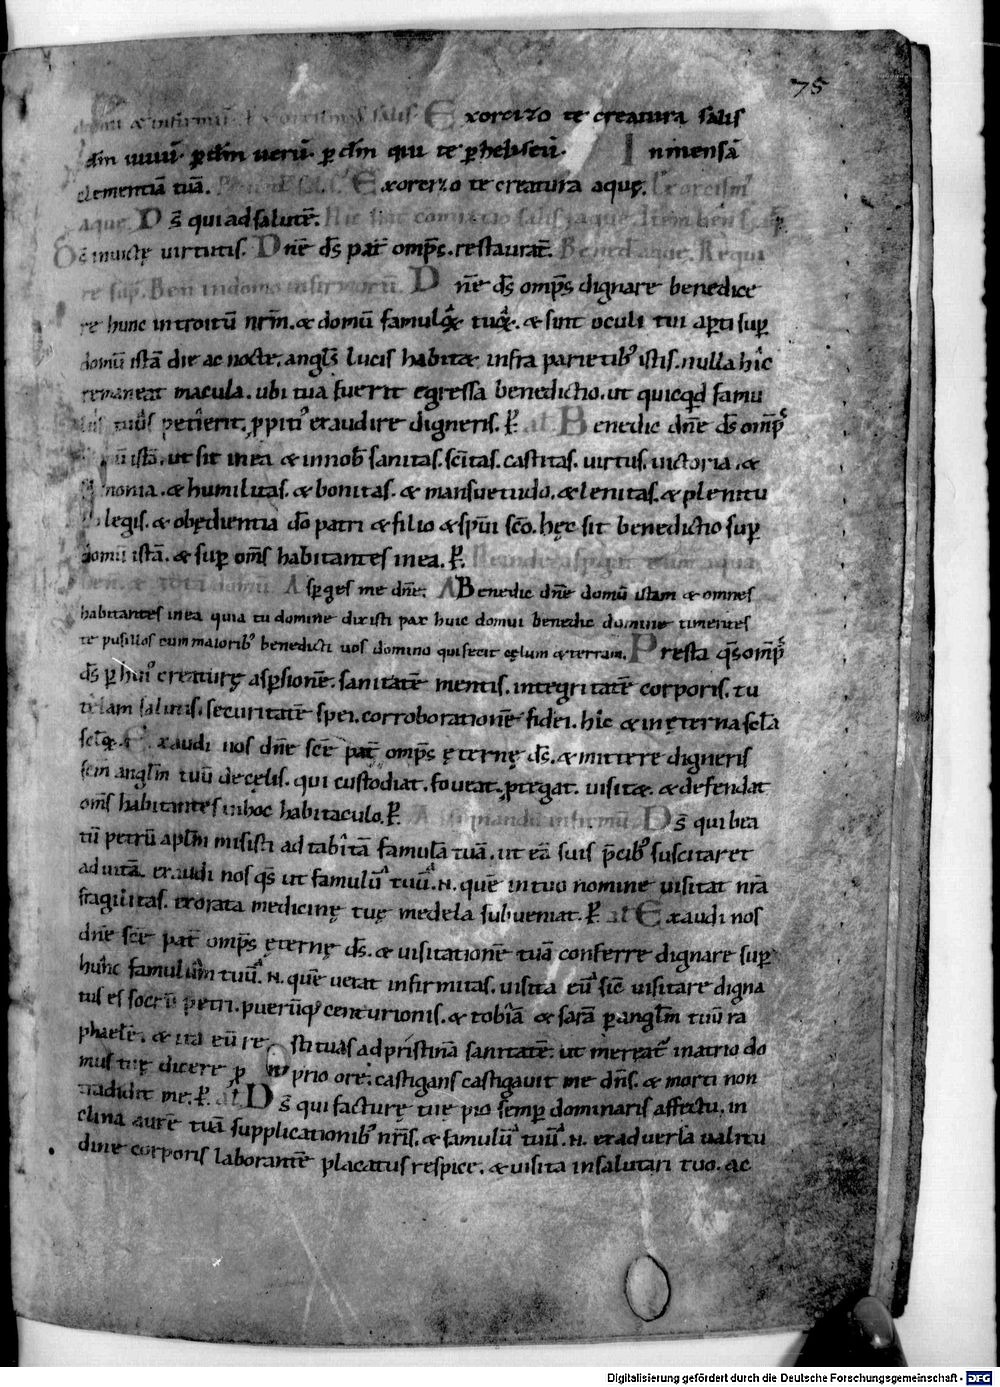 75
domū & infirmū. Exorcismus salis. Exorcizo te creatura salis
dm̄ uiuū. ꝑ dm̄ uerū. ꝑ dm̄ qui te ꝑ heliseū. Inmensā
clementiā tuā. Exorcizo te creatura aquę. Exorcism'
aque. Ds̄ qui ad salutē. Hic fiat comixtio salis & aque. Item
Ds̄ inuictę uirtutis. Dn̄e ds̄ pat̄ omp̄s. restaurat̄. Bened aque. Requi
re sup̄. Ben in domo infirmorū. Dn̄e ds̄ omp̄s dignare benedice
re hunc introitū nr̄m. & domū famuloꝝ tuoꝝ. & sint oculi tui aꝑti suꝑ
domū istā die ac nocte. angl̄s lucis habitæ infra parietib' istis. nulla hic
remaneat macula. ubi tua fuerit egressa benedictio. ut quicqd famu
tuus petierit. ꝓpiti' exaudire digneris. ꝑ. al Benedic dn̄e ds̄ omp̄s
istā. ut sit in ea & in nob̄ sanitas. sc̄itas. castitas. uirtus. uictoria. &
monia. & humilitas. & bonitas. & mansuetudo. & lenitas. & plenitu
legis. & obędientia dō patri & filio & sp̄ui sc̄o. hęc sit benedictio suꝑ
domū istā. & suꝑ om̄s habitantes in ea. ꝑ. Deinde aspergat eum aqua
ben. & totā domū. Aspges me dn̄e. A Benedic dn̄e domū istam & omnes
habitantes in ea quia tu domine dixisti pax huic domui benedic domine timentes
te pusillos cum maiorib' benedicti uos domino qui fecit cęlum & terram. Presta qs̄ omp̄s
ds̄ ꝑ hui' creaturę aspsionē. sanitatē mentis. integritatē corporis. tu
telam salutis. securitatē spei. corroborationē fidei. hic & in ęterna sc̄la
sc̄loꝝ. Exaudi nos dn̄e sc̄e pat̄ omp̄s ęternę ds̄. & mittere digneris
sc̄m angl̄m tuū de cęlis. qui custodiat. foueat. ꝓtegat. uisitæ. & defendat
om̄s habitantes in hoc habitaculo. ꝑ. Ad uisitandū infirmū. Ds̄ qui bea
tū petrū apl̄m misisti ad tabitā famulā tuā. ut eā suis p̄cib' suscitaret
ad uitā. exaudi nos qs̄ ut famulū tuū. N. quē in tuo nomine uisitat nr̄a
fragilitas. exorata medicinę tuę medela subueniat. ꝑ. al Exaudi nos
dn̄e sc̄e pat̄ omp̄s ęternę ds̄. & uisitationē tuā conferre dignare suꝑ
hunc famulum tuū. N. quē uexat infirmitas. uisita eū sic̄ uisitare digna
tus es socrū petri. puerūq' centurionis. & tobiā & sarā ꝑ angl̄m tuū ra
phaelē. & ita eū re stituas ad pristinā sanitatē. ut mereat̄ in atrio do
mus tuę dicere ꝓ prio ore. castigans castigauit me dn̄s. & morti non
tradidit me. ꝑ. al Ds̄ qui facturę tuę pio semꝑ dominaris affectu. in
clina aurē tuā supplicationib' nr̄is. & famulū tuū. N. ex aduersa ualitu
dine corporis laborantē placatus respice. & uisita in salutari tuo. ac
Digitalisierung gefördert durch die Deutsche Forschungsgemeinschaft - DFG